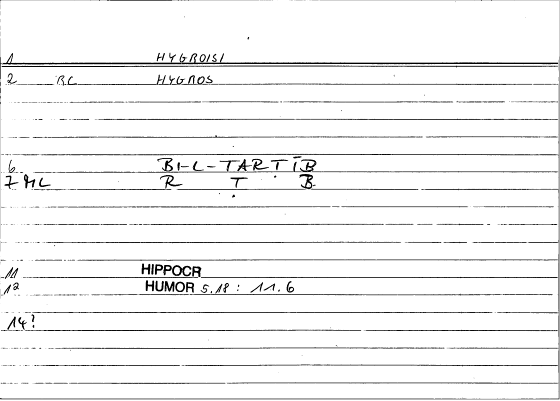 1 HYGROISI
2 RC HYGROS
6 BI-L-TARTĪB
7 ML R Ṭ B
11 HIPPOCR
12 HUMOR 5.18 : 11.6
14?